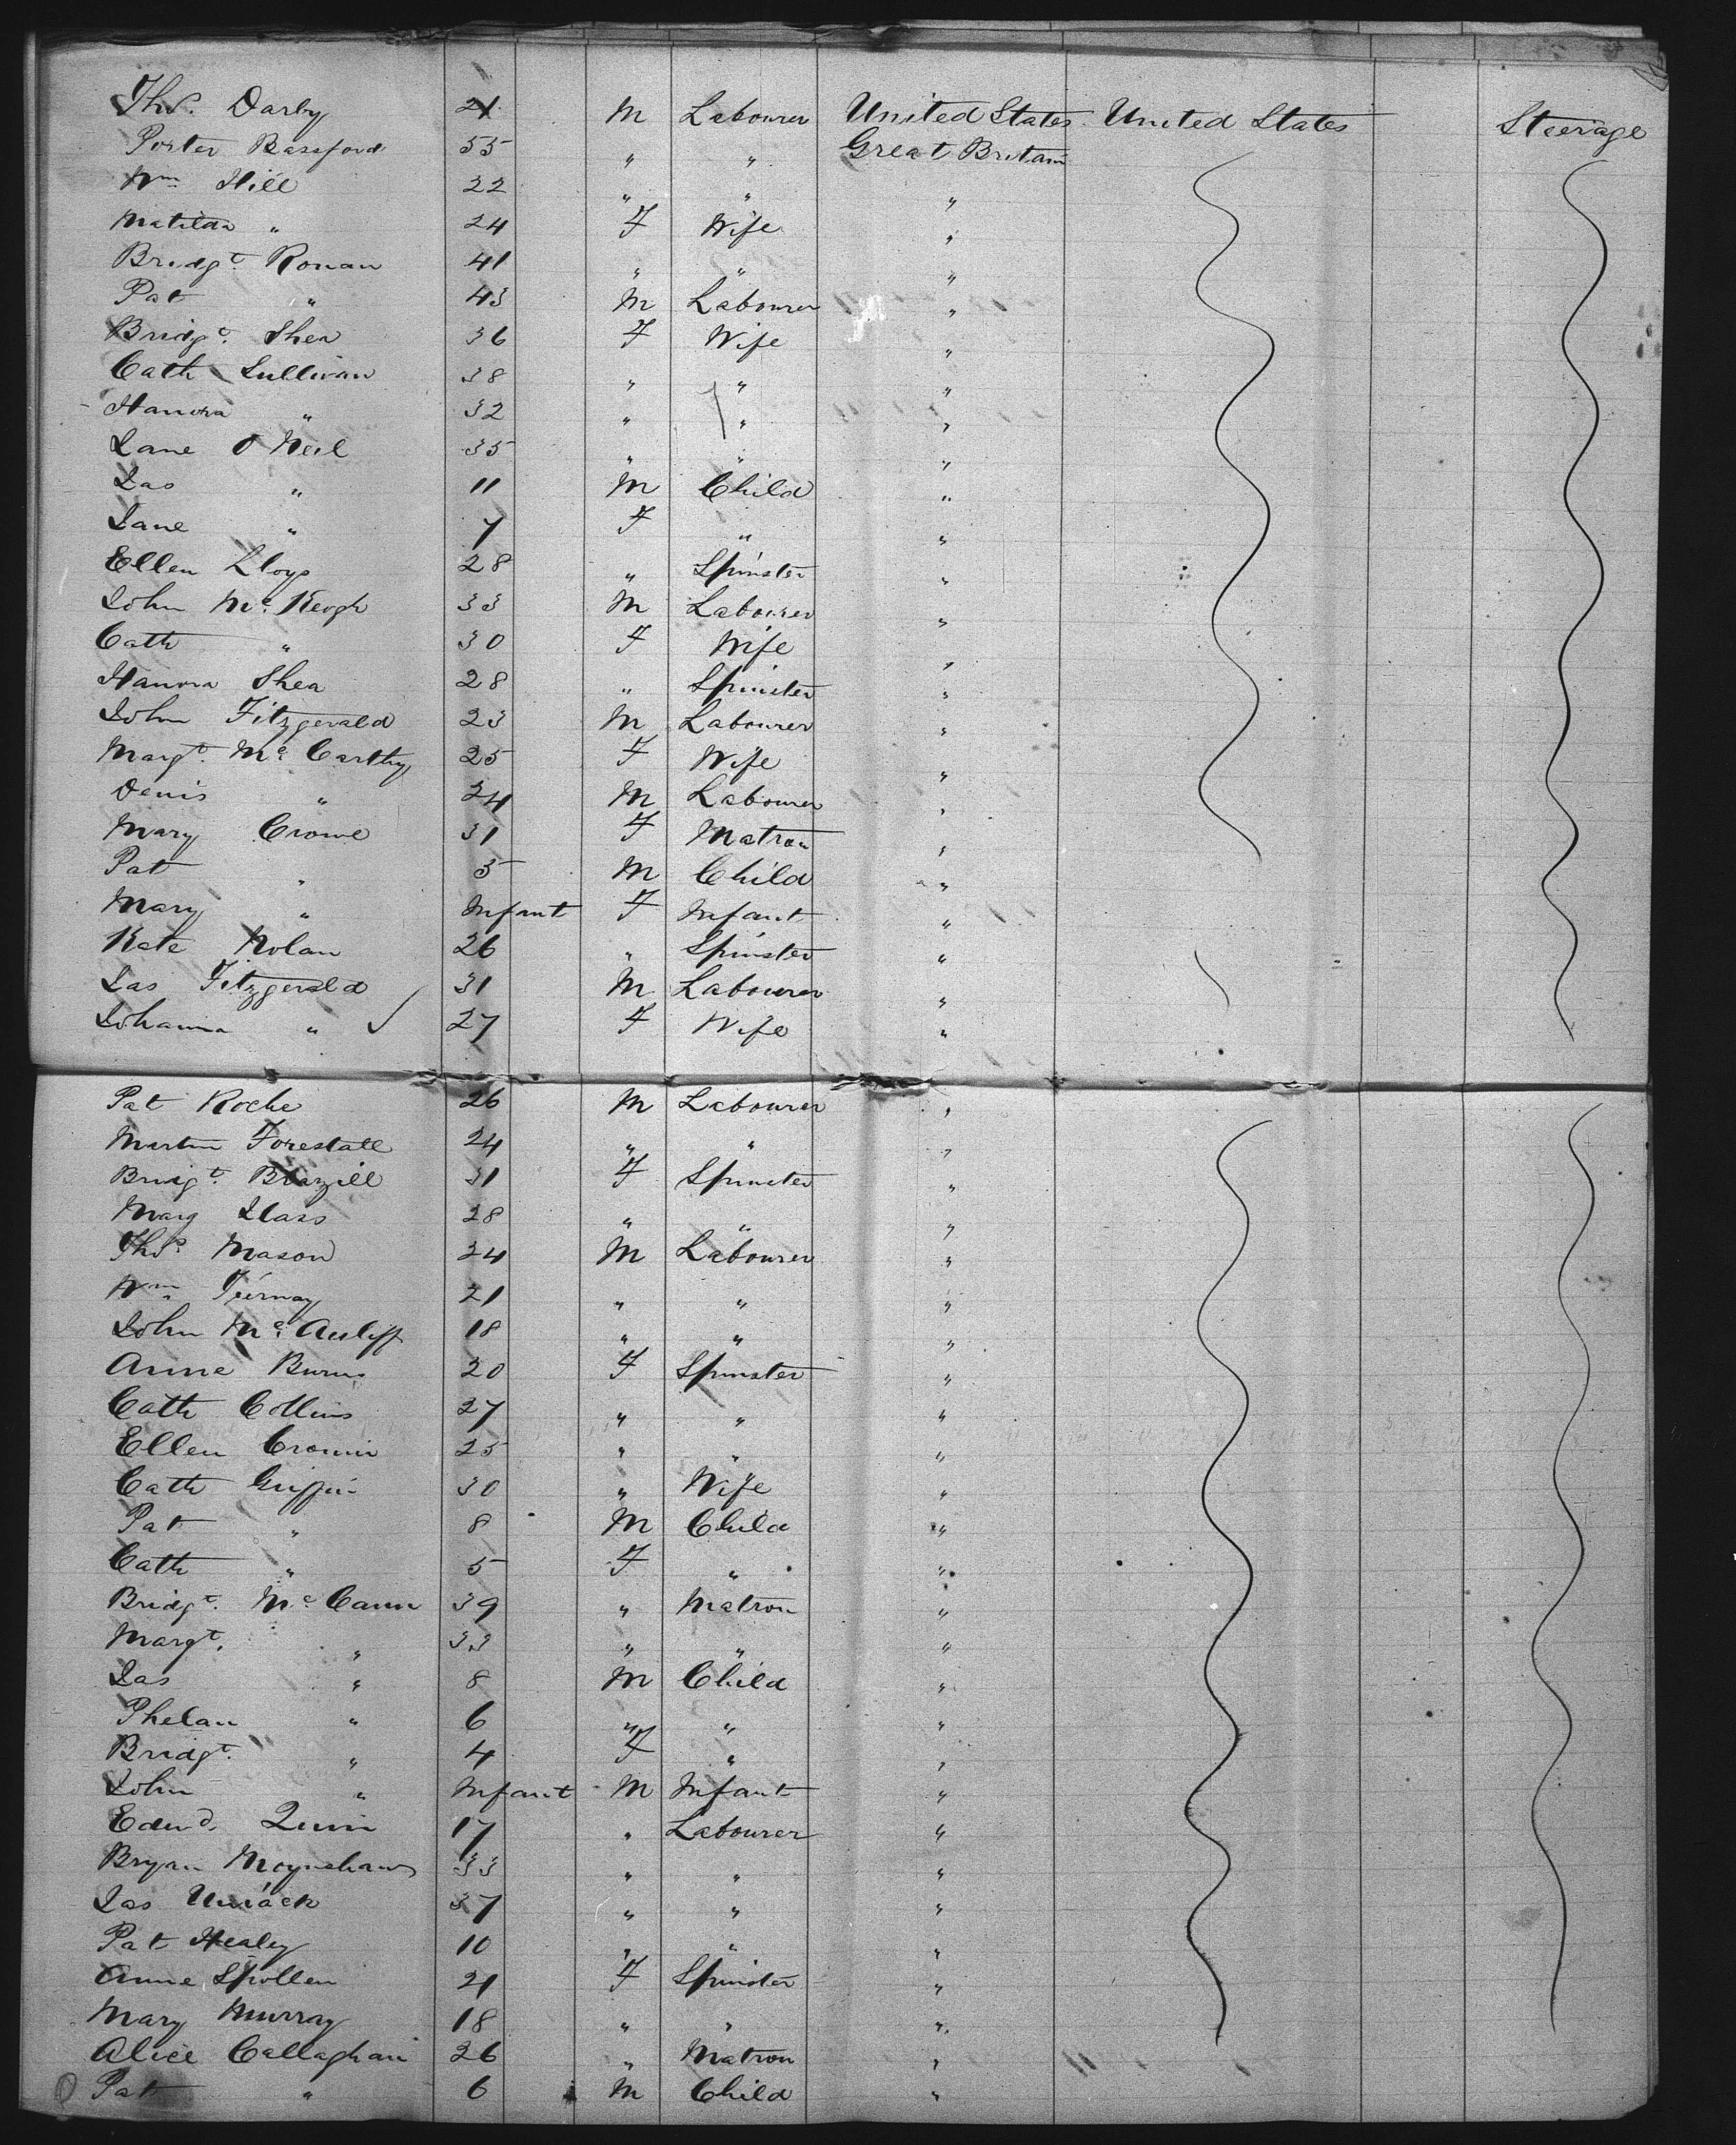 Thos. Darby 21 M Labourer United States United States Steerage
Porter Bassford 55 " " Great Britain
Wm Hill 22 " " "
Matilda " 24 F Wife "
Bridgt. Ronan 41 " " "
Pat " 43 M Labourer "
Bridgt. Shea 36 F Wife "
Cath Sullivan 38 " " "
Hanora " 32 " " "
Jane O Neil 35 " " "
Jas " 11 M Child "
Jane " 7 F " "
Ellen 28 " Spinster "
John Mc. Keogh 33 M Labourer "
Cath " 30 F Wife "
Hanora Shea 28 " Spinster "
John Fitzgerald 23 M Labourer "
Margt. Mc. Carthy 25 F Wife "
Denis " 24 M Labourer "
Mary Crowe 31 F Matron "
Pat " 5 M Child "
Mary " Infant F Infant "
Kate Nolan 26 " Spinster "
Jas Fitzgerald 31 M Labourer "
Johanna " 27 F Wife "
Pat Roche 26 M Labourer "
Martin Forestall 24 " " "
Bridgt. Brazill 31 F Spinster "
Marg 28 " " "
Thos. Mason 24 M Labourer "
Wm. 21 " " "
John Mc. Auliff 18 " " "
Anne Burns 20 F Spinster "
Cath Collins 27 " " "
Ellen Cronin 25 " " "
Cath Griffin 30 " Wife "
Pat " 8 M Child "
Cath " 5 F " "
Bridgt. Mc Cann 39 " Matron "
Margt. " 33 " " "
Jas " 8 M Child "
Phelan " 6 " " "
Bridgt. " 4 F " "
John " Infant M Infant "
Edmd. Quin 17 " Labourer "
Bryan 33 " " "
Jas Uniack 37 " " "
Pat Healey 10 " " "
Anne Spollen 21 F Spinster "
Mary Murray 18 " " "
Alice Callaghan 26 " Matron "
Pat " 6 M Child "